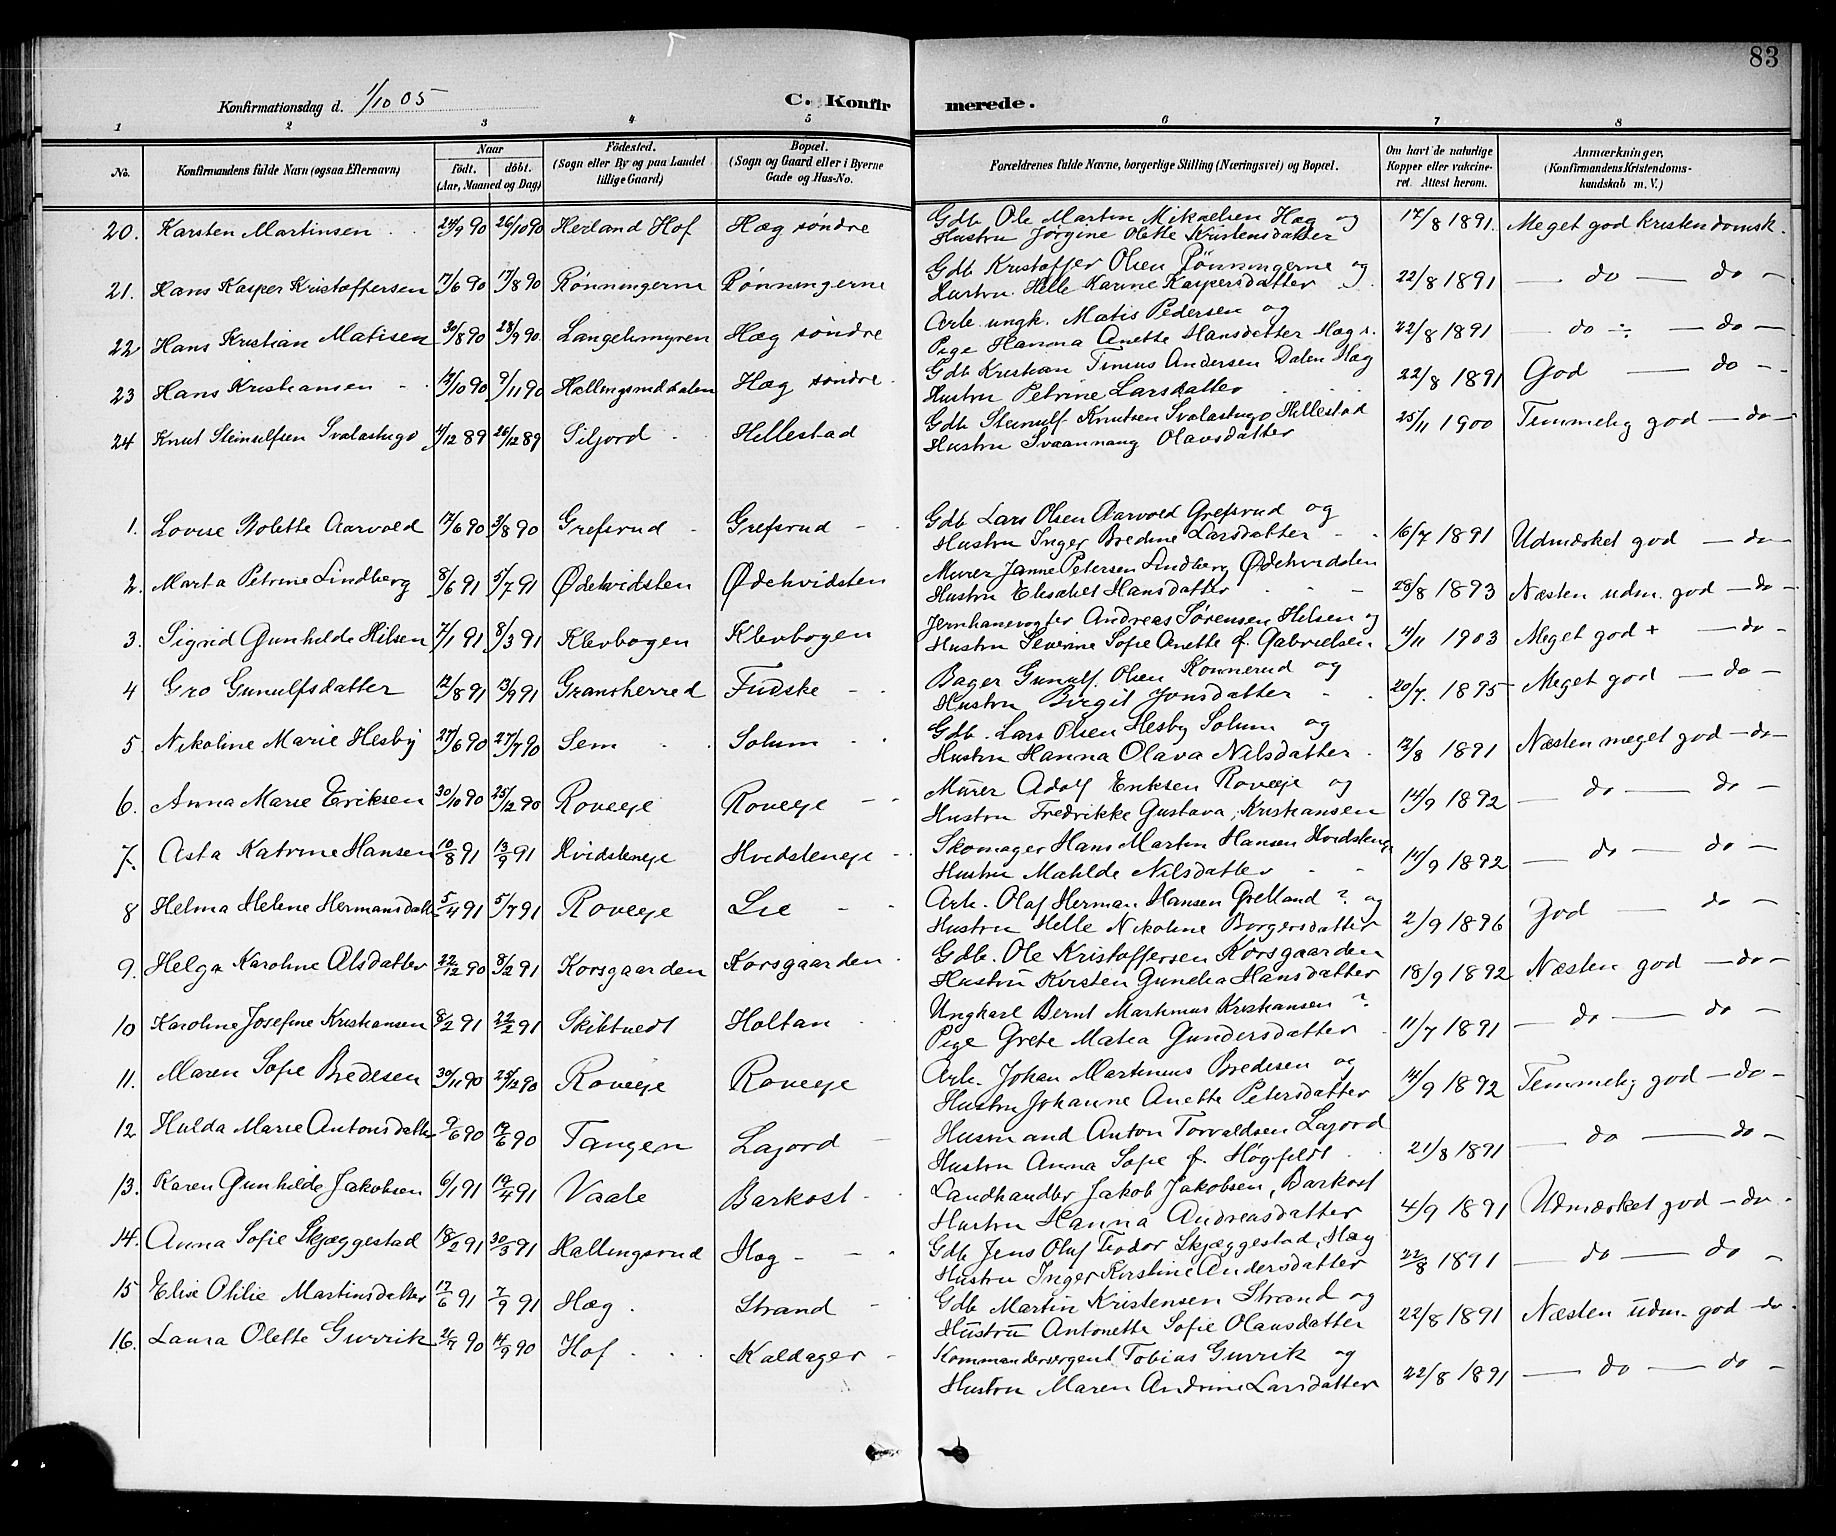 83
Konfirmationsdag d. 1/10 05
C. Konfirmerede.
1 2 3 4 5 6 7 8
No. Konfirmandens fulde Navn (ogsaa Efternavn) Naar födt. döbt. (Aar, Maaned og Dag) Födested. (Sogn eller By og paa Landet tillige Gaard) Bopæl. (Sogn og Gaard eller i Byerne Gade og Hus-No. Forældrenes fulde Navne, borgerlige Stilling (Næringsvei) og Bopæl. Om havt de naturlige Kopper eller vakcineret. Attest herom. Anmærkninger, (Konfirmandens Kristendomskundskab m. V.)
20. Karsten Martinsen 24/9 90 26/10 90 Herland Hof Hæg søndre Gdb Ole Martin Mikaelsen Hæg og 17/8 1891. Meget god kristendomsk.
Hustru Jørgine Olette Kristensdatter
21. Hans Kasper Kristoffersen 17/6 90 17/8 90 Rønningerne Rønningerne Gdb Kristoffer Olsen Rønningerne og 22/8 1891 — do — do –
Hustru Helle Karine Kaspersdatter
22 Hans Kristian Matisen 30/8 90 28/9 90 Langelimyren Hæg søndre Arb. ungk. Matis Pedersen og 22/8 1891 — do — do —
Pige Hanna Anette Hansdatter Hæg s.
23 Hans Kristiansen 12/10 90 9/11 90 Hallingsruddalen Hæg søndre Gdb Kristian Tinius Andersen Dalen Hæg 22/8 1891 God — do –
Hustru Petrine Larsdatter
24 Knut Steinulfsen Svalastugo 4/12 89 26/12 89 Siljord Hellestad Gdb Steinulf Knutsen Svalastugo Hellestad 25/11 1900 Temmelig god — do –
Hustru Svaannaug Olavsdatter
1. Lovise Bolette Aarvold 17/6 90 3/8 90 Grefsrud Grefsrud Gdb Lars Olsen Aarvold Grefsrud og 16/7 1891 Udmærket god — do –
Hustru Inger Bredine Larsdatter
2. Marta Petrine Lindberg 8/6 91 5/7 91 Ødekvidsten Ødekvidsten Murer Janne Petersen Lindberg Ødekvidsten 28/8 1893 Næsten udm. god — do –
Hustru Elisabet Hansdatter
3. Sigrid Gunhilde Hilsen 7/1 91 8/3 91 Klevbogen Klevbogen Jernbanevogter Andreas Sørensen Hilsen og 4/11 1903 Meget god + — do –
Hustru Severine Sofie Anette f. Gabrielsen
4 Gro Gunulfsdatter 12/8 91 13/9 91 Gransherred Fudske Bager Gunulf Olsen Konnerud og 20/7. 1895 Meget god — do –
Hustru Birgit Jonsdatter
5. Nikoline Marie Hesby 27/6 90 27/7 90 Sem Solum Gdb. Lars Olsen Hesby Solum og 12/8 1891 Næsten meget god — do –
Hustru Hanna Olava Nilsdatter
6. Anna Marie Eriksen 30/10 90 25/12 90 Roveeje Roveeje Murer Adolf Eriksen Roveeje og 14/9 1892 — do — do –
Hustru Fredrikke Gustava Kristiansen
7. Asta Katrine Hansen 10/8 91 13/9 91 Kvidsteneje Hvidsteneje Skomager Hans Martin Hansen Hvidsteneje 14/9 1892 — do — do –
Hustru Matilde Nilsdatter
8 Helma Helene Hermansdatter 5/4 91 5/7 91 Roveeje Lie Arb. Olaf Herman Hansen Grelland ? og 2/9 1896 God — do –
Hustru Helle Nikoline Borgersdatter
9. Helga Karoline Olsdatter 22/12 90 8/2 91 Korsgaarden Korsgaarden Gdb. Ole Kristoffersen Korsgaarden 18/9 1892 Næsten god — do –
Hustru Kirsten Gunelia Hansdatter
10 Karoline Josefine Kristiansen 8/2 91 22/2 91 Skibtvedt Holtan Ungkarl Bernt Martinius Kristiansen ? 11/7 1891 — do — do –
Pige Grete Matea Gundersdatter
11. Maren Sofie Bredesen 30/11 90 25/12 90 Roveeje Roveeje Arb. Johan Martinius Bredesen og 14/9 1892 Temmelig god — do –
Hustru Johanne Anette Petersdatter
12 Hulda Marie Antonsdatter 9/6 90 19/6 90 Tangen Lajord Husmand Anton Torvaldsen Lajord 21/8 1891 — do — do –
Hustru Anna Sofie f. Høgfeldt
13. Karen Gunhilde Jakobsen 6/1 91 19/4 91 Vaale Barkost Landhandler Jakob Jakobsen, Barkost 4/9 1891 Udmærket god — do –
Hustru Hanna Andreasdatter
14. Anna Sofie Skjæggestad 18/2 91 30/3 91 Hallingsrud Hæg Gdb Jens Oluf Teodor Skjæggestad, Hæg 22/8 1891 — do — do –
Hustru Inger Kirstine Andersdatter
15 Elise Otilie Martinsdatter 17/6 91 7/9 91 Hæg Strand Gdb Martin Kristensen Strand og 22/8 1891 Næsten udm. god do.
Hustru Antonette Sofie Olausdatter
16. Laura Olette Gurrik 2/7 90 14/9 90 Hof Kaldager Kommandersergent Tobias Gurrik og 22/8 1891 — do — do –
Hustru Maren Andrine Larsdatter